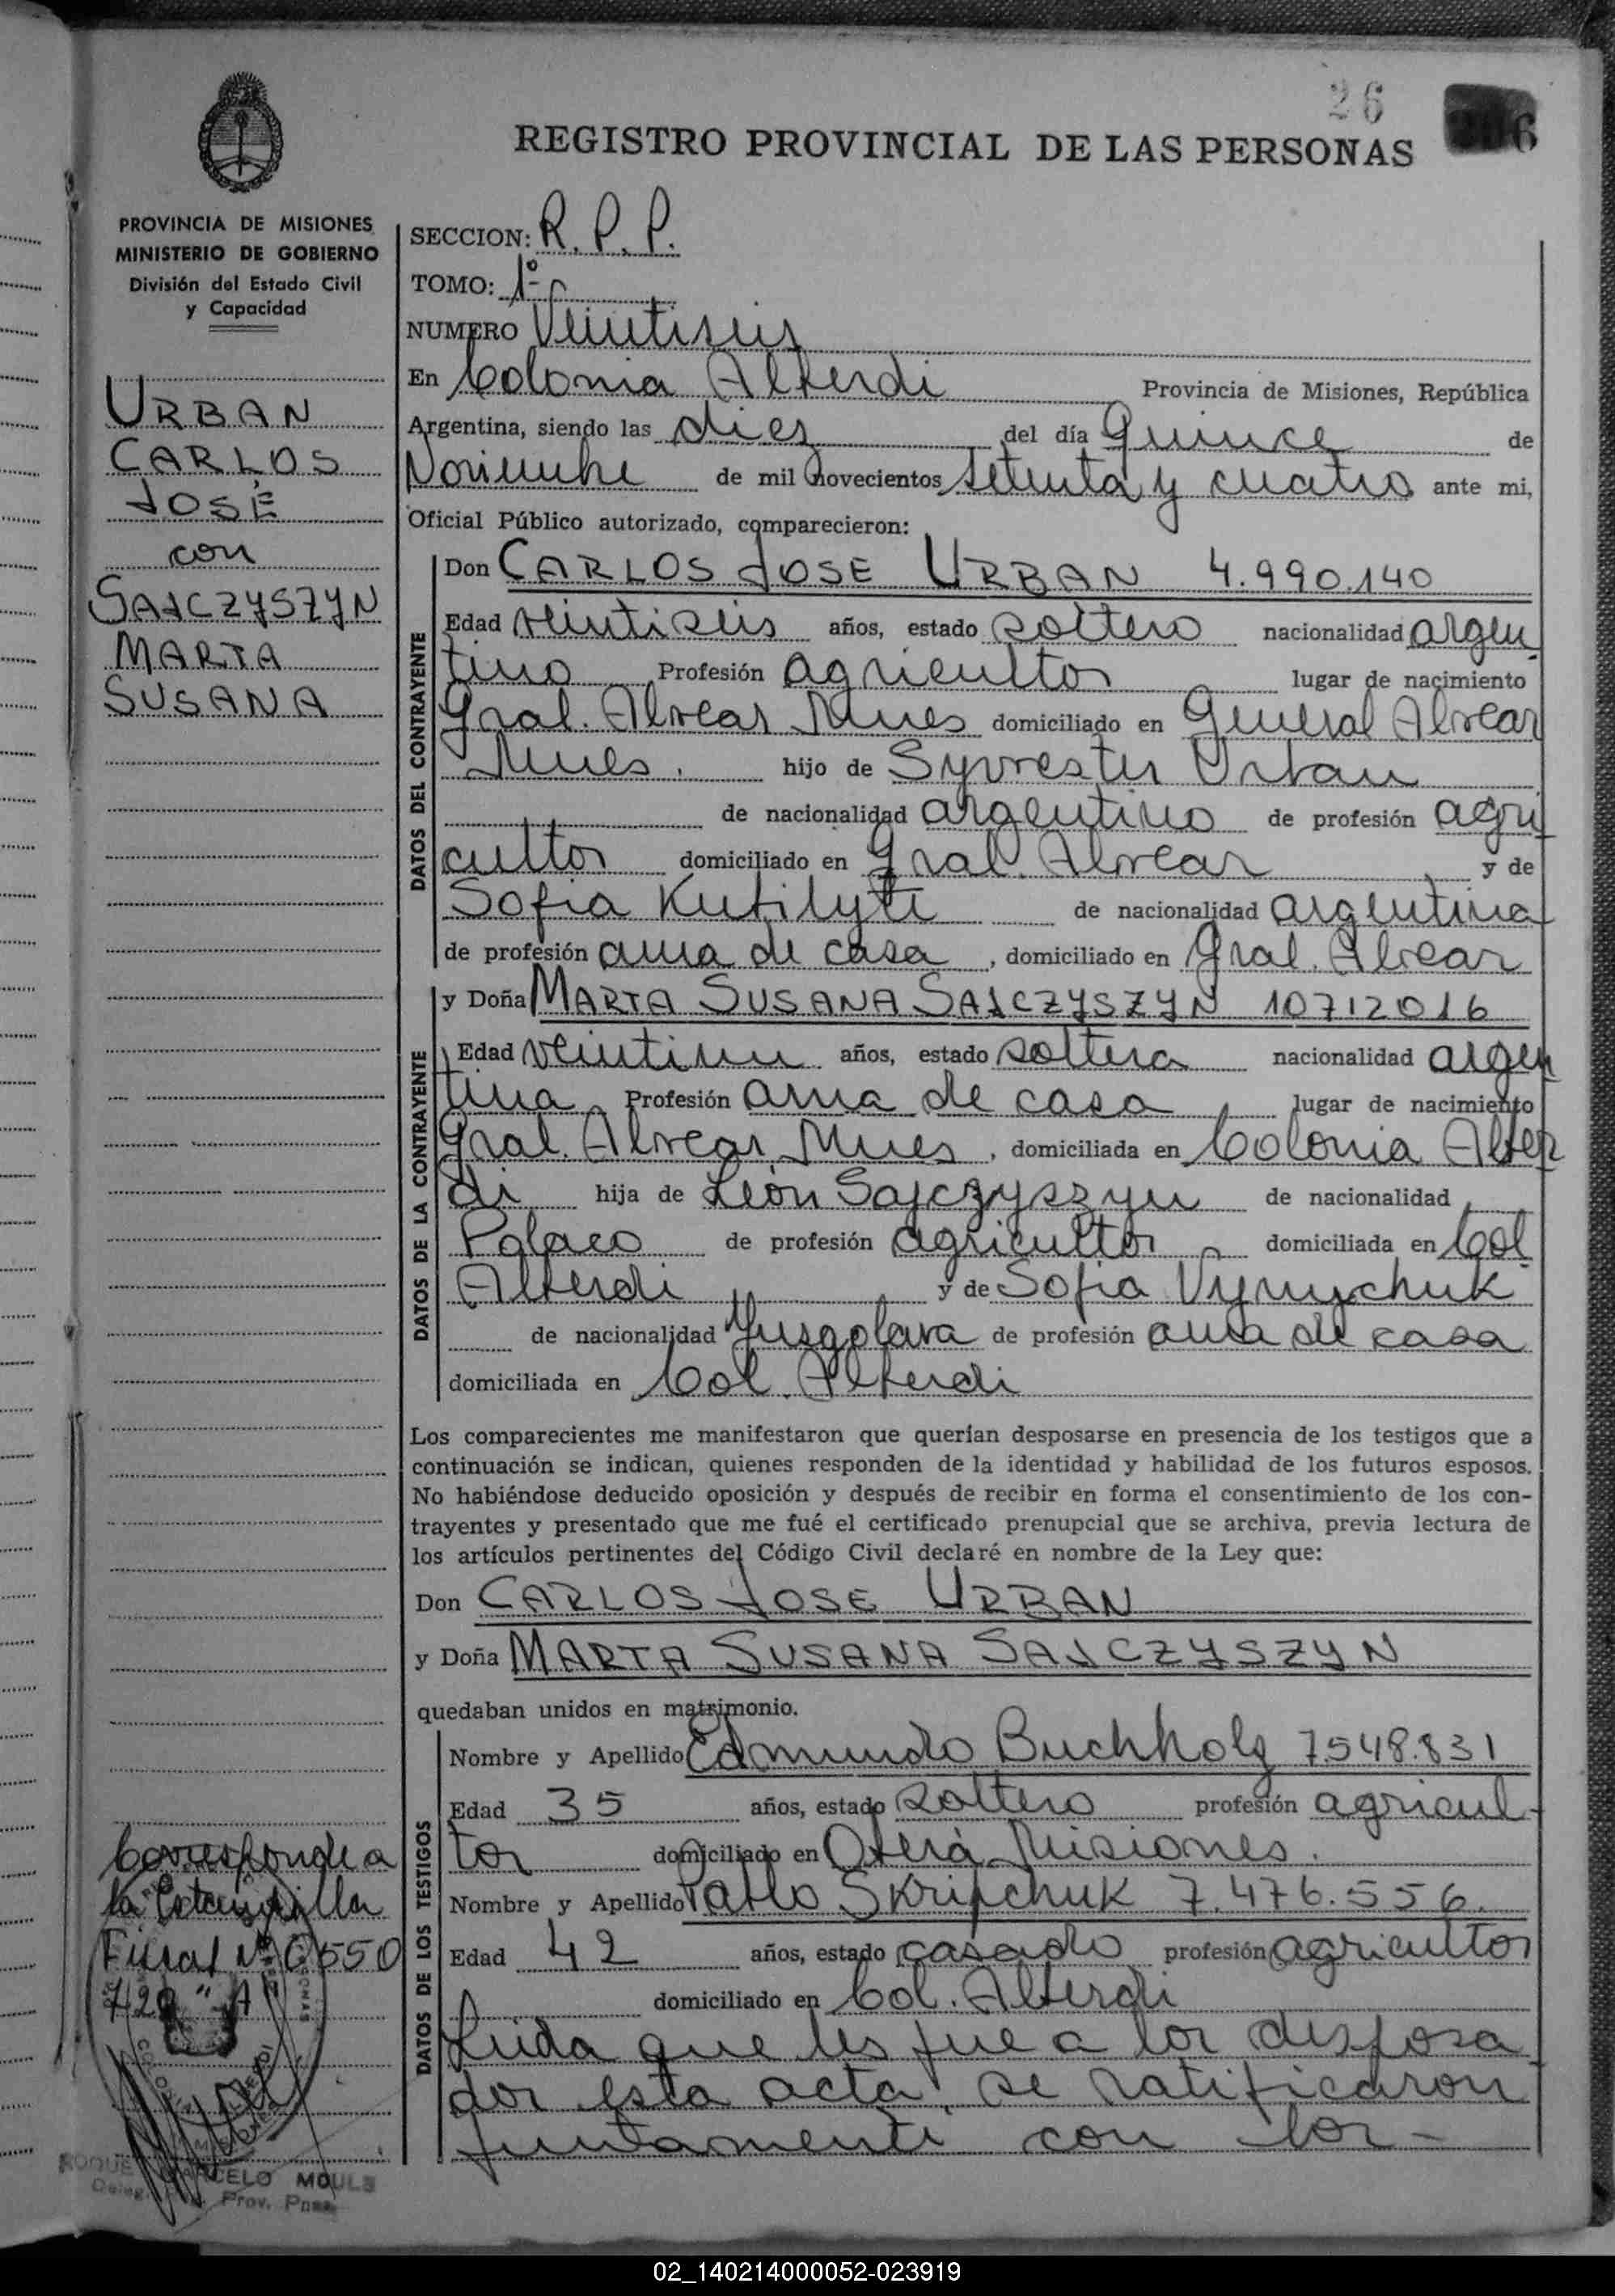 26
REGISTRO PROVINCIAL DE LAS PERSONAS
PROVINCIA DE MISIONES
MINISTERIO DE GOBIERNO
División del Estado Civil
y Capacidad
URBAN
CARLOS
JOSÉ
con
SAJCZYSZYN
MARTA
SUSANA
SECCION: R. P. P.
TOMO: 1º
NUMERO Veintiseis
En Colonia Alberdi Provincia de Misiones, República
Argentina, siendo las diez del día Quince de
Noviembre de mil novecientos setenta y cuatro ante mi,
Oficial Público autorizado, comparecieron:
DATOS DEL CONTRAYENTE
Don CARLOS JOSE URBAN 4.990.140
Edad veintiseis años, estado soltero nacionalidad argen
tino Profesión agricultor lugar de nacimiento
Gral. Alvear Mnes domiciliado en General Alvear
Mnes. hijo de Syvrester Urban
de nacionalidad argentino de profesión agri
cultor domiciliado en Gral. Alvear y de
Sofia Kutilyte de nacionalidad argentina
de profesión ama de casa, domiciliado en Gral. Alvear
DATOS DE LA CONTRAYENTE
y Doña MARTA SUSANA SAJCZYSZYN 10712016
Edad veintiun años, estado soltera nacionalidad argen
tina Profesión ama de casa, lugar de nacimiento
Gral. Alvear, Mnes, domiciliada en Colonia Alber
di hija de León Sajczyszyn de nacionalidad
Polaco de profesión agricultor domiciliada en Col
Alberdi y de Sofia Vynnychuk
de nacionalidad Yusgolava de profesión ama de casa
domiciliada en Col. Alberdi
Los comparecientes me manifestaron que querían desposarse en presencia de los testigos que a
continuación se indican, quienes responden de la identidad y habilidad de los futuros esposos.
No habiéndose deducido oposición y después de recibir en forma el consentimiento de los con-
trayentes y presentado que me fué el certificado prenupcial que se archiva, previa lectura de
los artículos pertinentes del Código Civil declaré en nombre de la Ley que:
Don CARLOS JOSE URBAN
y Doña MARTA SUSANA SAJCZYSZYN
quedaban unidos en matrimonio.
DATOS DE LOS TESTIGOS
Nombre y Apellido Edmundo Buchholz 7.548.831
Edad 35 años, estado soltero profesión agricul-
tor domiciliado en Oberá Misiones.
Nombre y Apellido Pablo Skripchuk 7.476.556.
Edad 42 años, estado casado profesión agricultor
domiciliado en Col. Alberdi
Leida que les fue a los desposa
dos esta acta, se ratificaron
juntamente con los-
Corresponde a
la Estampilla
Fiscal Nº 0550
720 "A"
ROQUE MARCELO MOULS
Prov. Pnas.
02_140214000052-023919